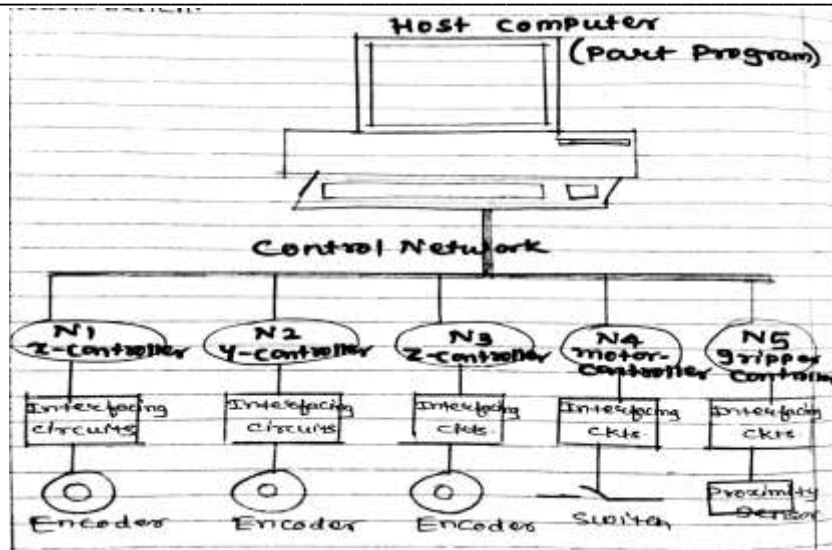 Host Computer
(Part Program)
Control Network
N1
x-controller
N2
y-controller
N3
z-controller
N4
motor-
controller
N5
gripper
Interfacing
circuits
Interfacing
circuits
Interfacing
ckts.
Interfacing
ckts.
Interfacing
ckts
Encoder
Encoder
Encoder
Switch
Proximity
Sensor